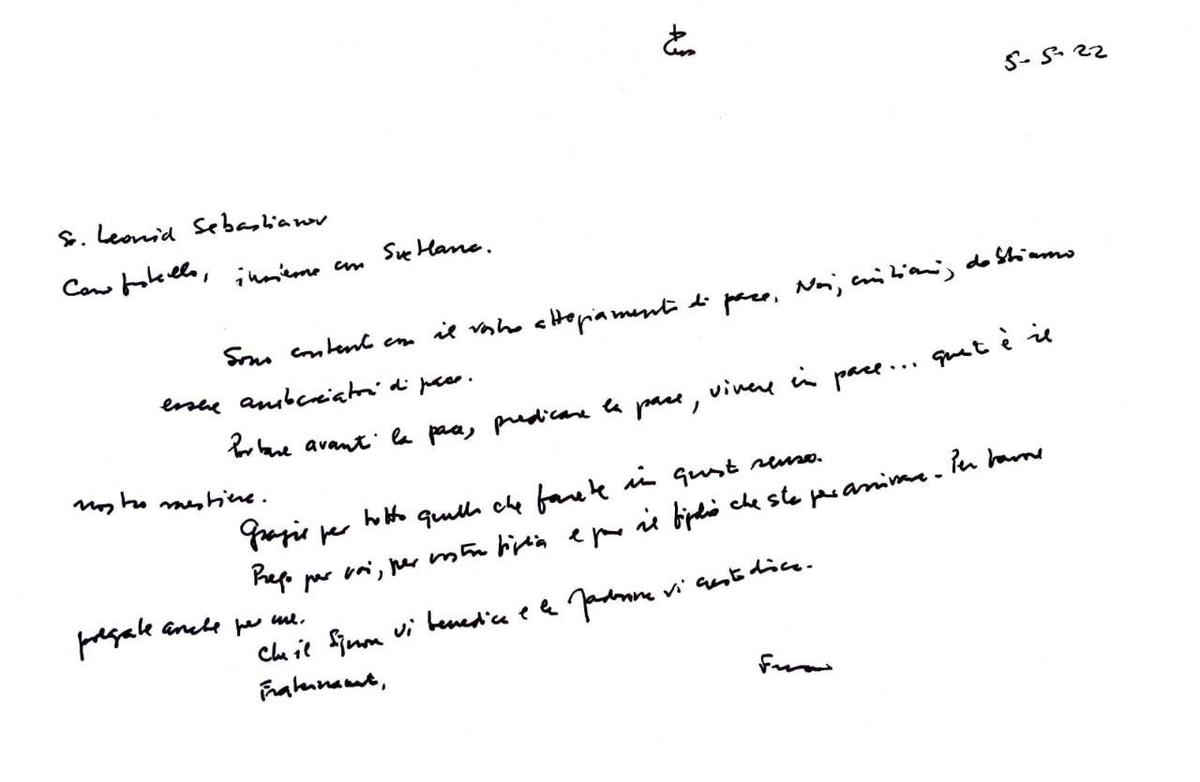 5-5-22
Sr. Leonid Sebastianov
Caro fratello, insieme con Svetlana.
Sono contento con il vostro attegiamento di pace. Noi, cristiani, dobbiamo
essere ambasciatori di pace.
Portare avanti la pace, predicare la pace, vivere in pace... questo è il
nostro mestiere.
Grazie per tutto quello che farete in questo senso.
Prego per voi, per vostra figlia e per il figlio che sta per arrivare. Per favore
pregate anche per me.
Che il Signore vi benedica e la Madonna vi custodisca.
Fraternamente,